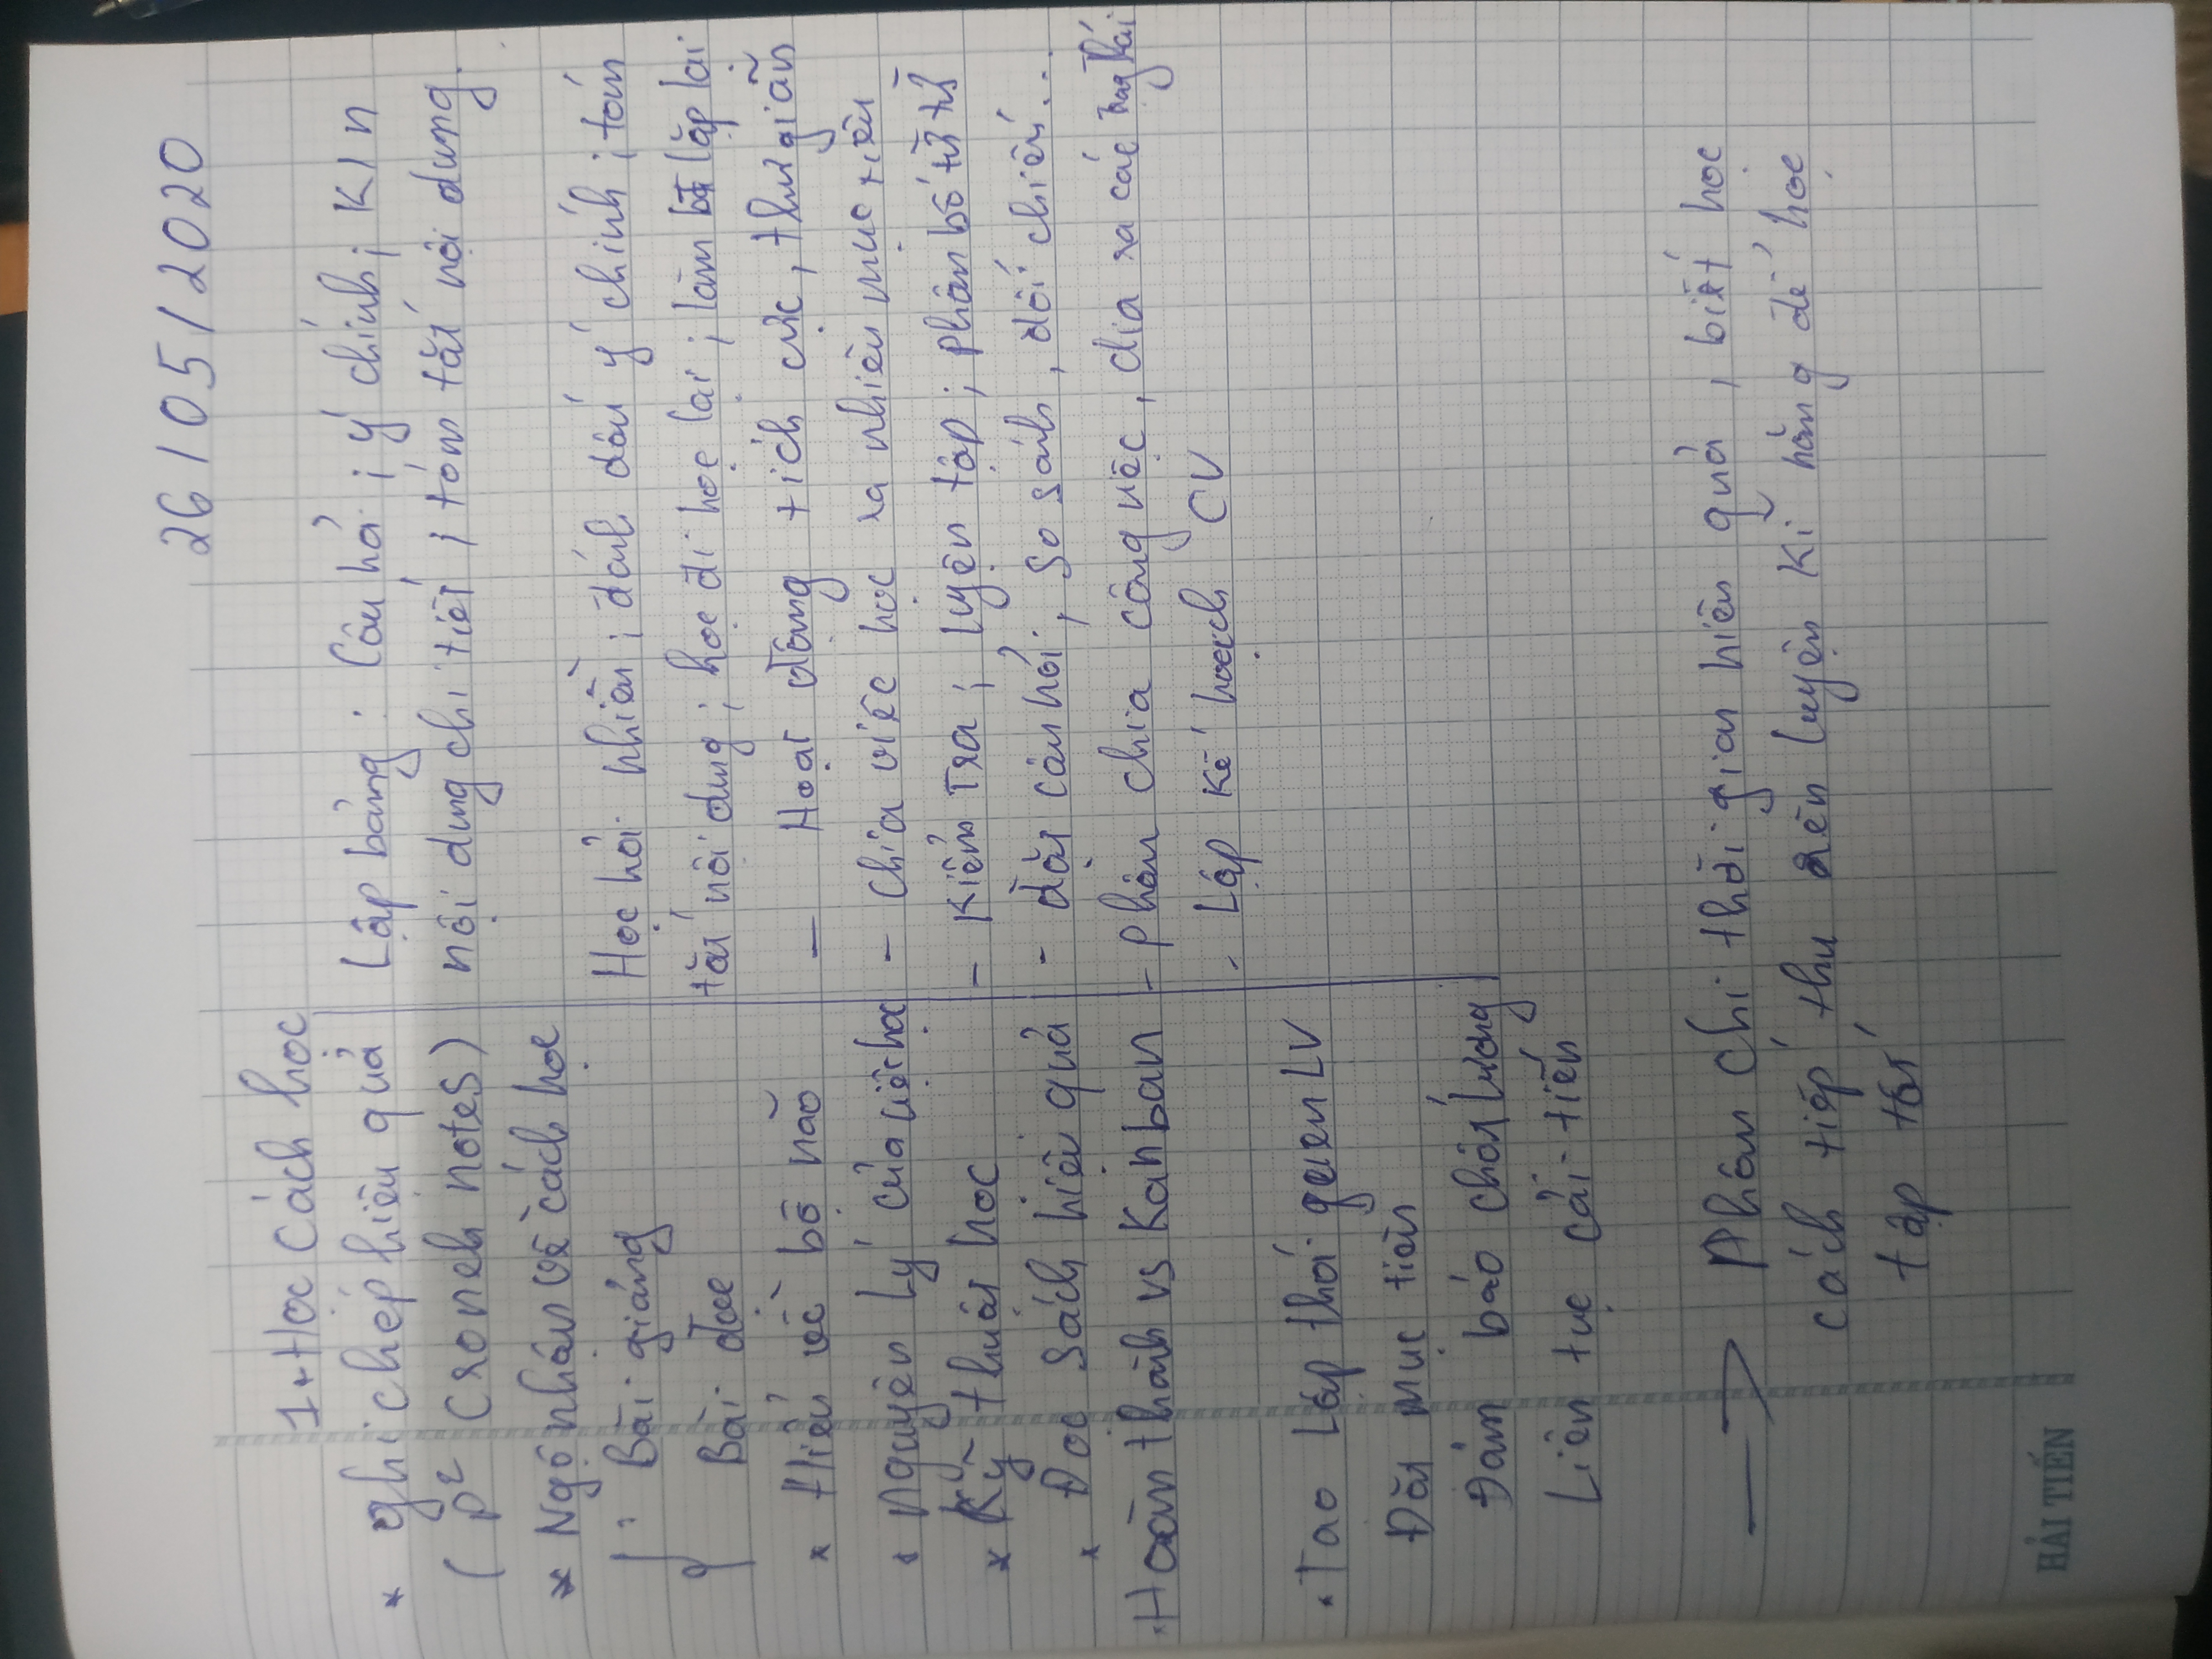 26/05/2020
1. Học cách học
* ghi chép hiệu quả
Lập bảng: Câu hỏi; ý chính; K/n
(P² Croneh notes)
nội dung chi tiết; tóm tắt nội dung.
* Ngộ nhận về cách học
Bài giảng
Học hỏi nhiều; đánh dấu ý chính; tóm
Bài đọc
tắt nội dung; học đi học lại; làm bt lặp lại
* Hiểu về bộ não
- Hoạt động tích cực, thư giãn
* Nguyên lý của việc học
- Chia việc học ra nhiều mục tiêu
* Kỹ thuật học
- Kiểm tra; luyện tập; phân bổ
* Đọc sách hiệu quả
- đặt câu hỏi, so sánh, đối chiếu...
Hoàn thành vs Kanban
- phân chia công việc, đưa ra các trạng thái
- Lập kế hoạch CV
. Tạo Lập thói quen LV
Đặt mục tiêu
Đảm bảo chất lượng
Liên tục cải tiến
→ Phân chi thời gian hiệu quả, biết học
cách tiếp thu rèn luyện kĩ năng để học
tập tốt
HẢI TIẾN